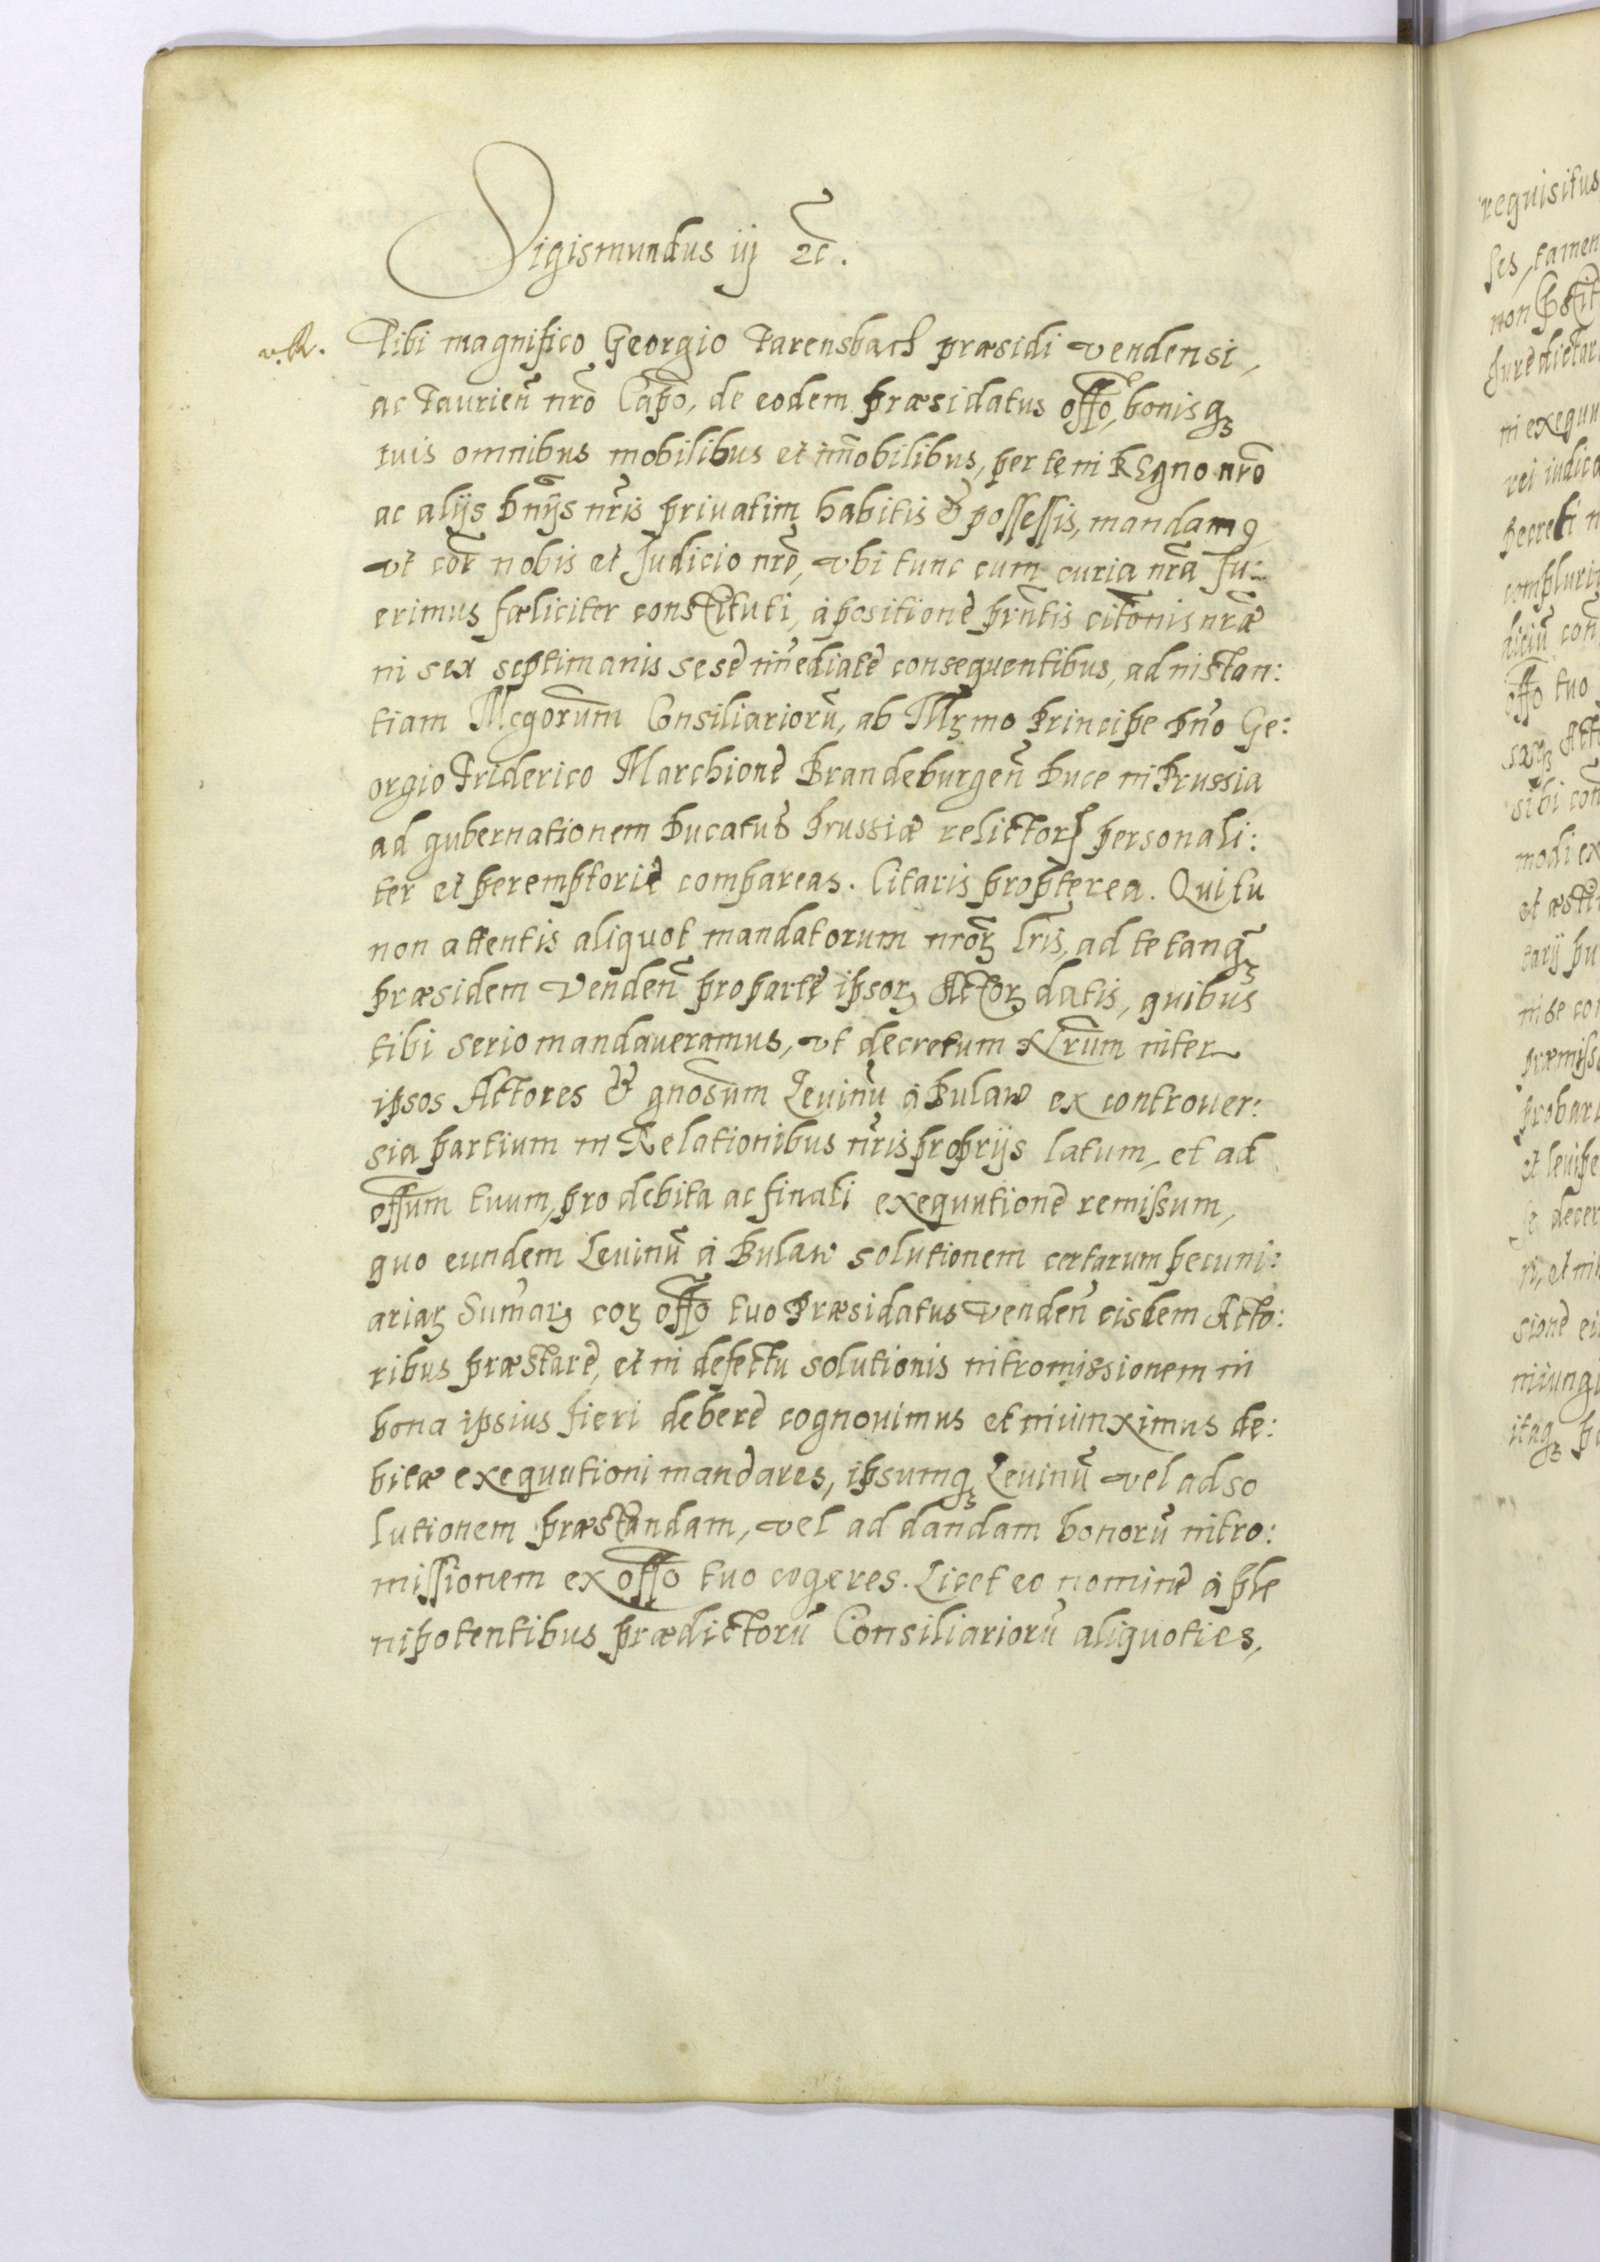 Sigismundus iij ꝛc̃.
Tibi magnifico Georgio Farensbach præsidi vendensi,
ac Tauricñ nr̃o Capõ, de eodem præsidatus offõ, bonisqꝫ
tuis omnibus mobilibus et im̃obilibus, per te in Regno nr̃o
ac alijs Dnĩjs nr̃is priuatim habitis & possessis, mandamꝰ
vt cor̃ nobis et Judicio nr̃o, vbi tunc cum curia nr̃a fu:
erimus fœliciter constituti, à positione pr̃ntis citõnis nr̃æ
in sex septimanis sese im̃ediatè consequentibus, ad instan:
tiam Mcgorũm Consiliariorũ, ab Illꝫmo Principe Dn̄o Ge:
orgio Friderico Marchione Brandeburgeñ Duce in Prussia
ad gubernationem Ducatus Prussiæ relictorꝫ personali:
ter et peremptoriè compareas. Citaris propterea. Qui tu
non attentis aliquot mandatorum nr̃orꝫ lr̃is, ad te tanqꝫ
præsidem Vendeñ pro parte ipsorꝫ Actorꝫ datis, quibus
tibi serio mandaueramus, vt decretum Nr̃um inter
ipsos Actores & gnosũm Leuinũ à Bulaw ex controuer:
sia partium in Relationibus nr̃is proprijs latum, et ad
offũm tuum, pro debita ac finali exequutione remissum,
quo eundem Leuinũ à Bulaw solutionem certarum pecuni:
ariarꝫ Sum̃arꝫ corꝫ offõ tuo Præsidatus Vendeñ eisdem Acto:
ribus præstare, et in defectu solutionis intromissionem in
bona ipsius fieri debere cognouimus et iniunximus de:
bitæ exequutioni mandares, ipsumqꝫ Leuinũ vel ad so
lutionem præstandam, vel ad dandam bonorũ intro:
missionem ex offõ tuo cogeres. Licet eo nomine à ple
nipotentibus prædictorũ Consiliariorũ aliquoties,
requisitus